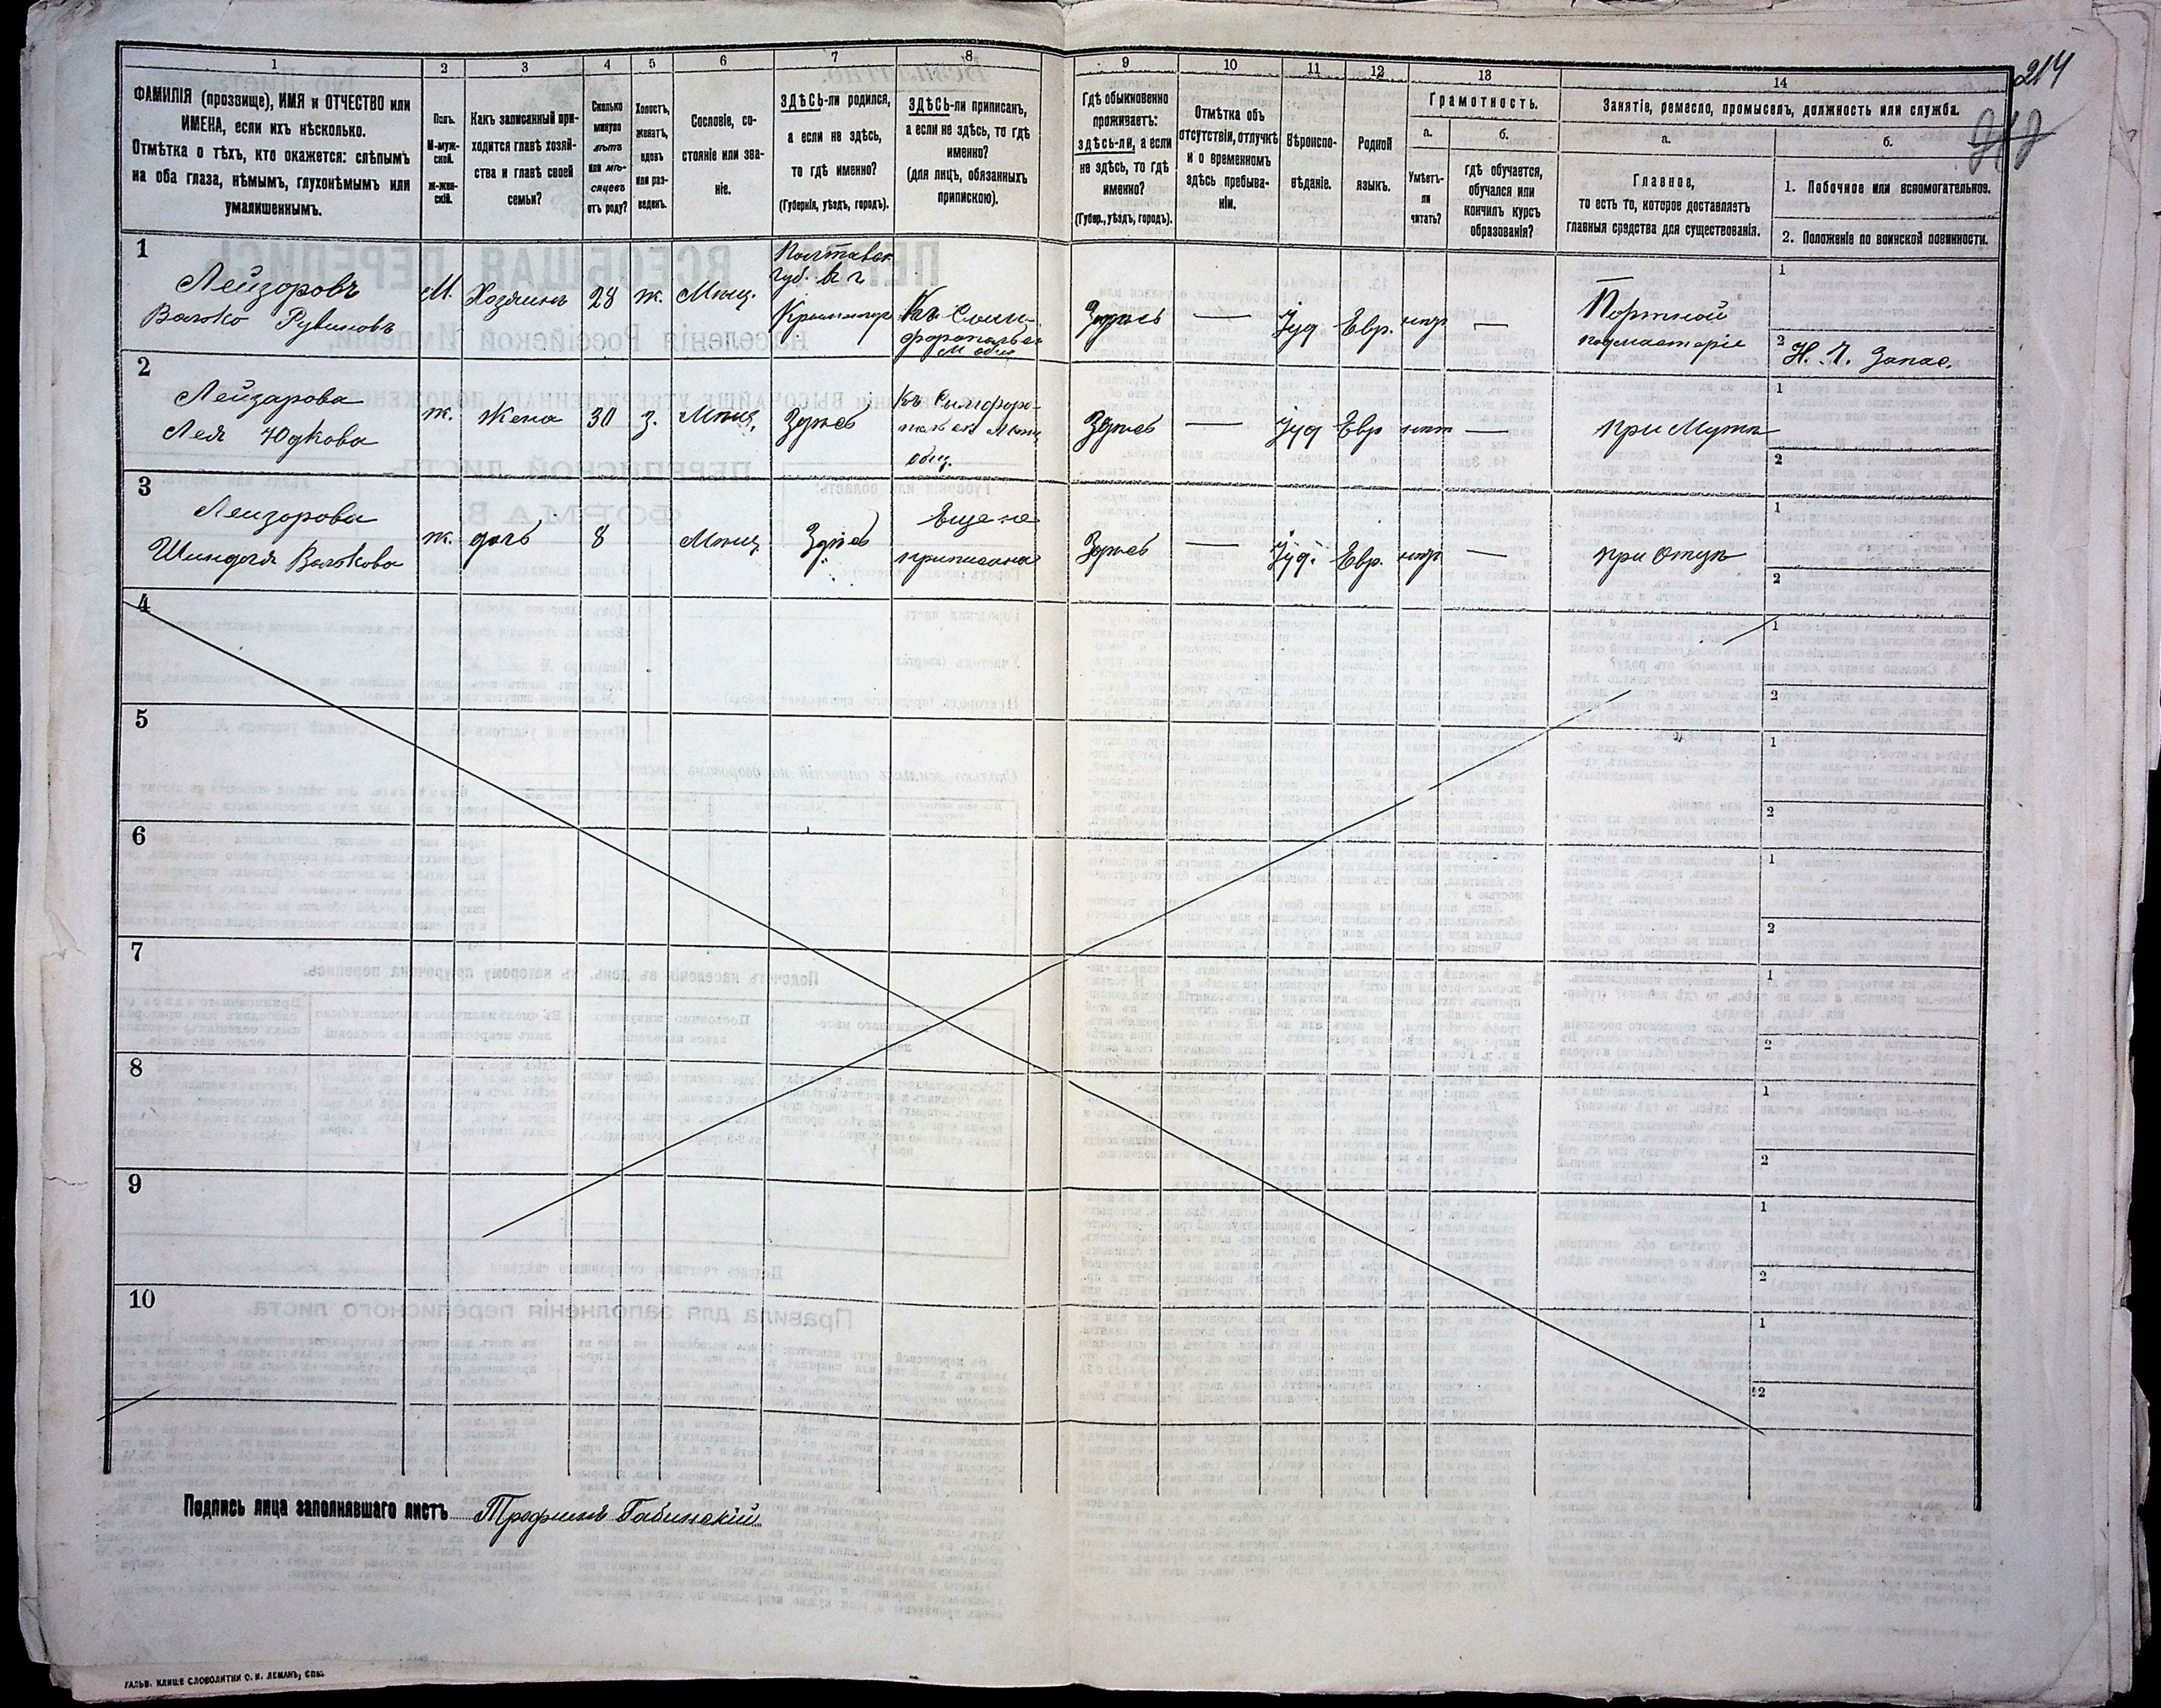 214
1
2
3
4
5
6
7
8
9
10
11
12
13
14
ФАМИЛІЯ (прозвище), ИМЯ и ОТЧЕСТВО или
ИМЕНА, если ихъ нѣсколько.
Отмѣтка о тѣхъ, кто окажется: слѣпымъ
на оба глаза, нѣмымъ, глухонѣмымъ или
умалишеннымъ.
Полъ.
М-муж-
ской.
Ж-жен-
скій.
Какъ записанный при-
ходится главѣ хозяй-
ства и главѣ своей
семьи?
Сколько
минуло
лѣтъ
или мѣ-
сяцевъ
отъ роду?
Холостъ,
женатъ,
вдовъ
или раз-
веденъ.
Сословіе, со-
стояніе или зва-
ніе.
ЗДѢСЬ-ли родился,
а если не здѣсь,
то гдѣ именно?
(Губернія, уѣздъ, городъ).
ЗДѢСЬ-ли приписанъ,
а если не здѣсь, то гдѣ
именно?
(для лицъ, обязанныхъ
припискою).
Гдѣ обыкновенно
проживаетъ:
здѣсь-ли, а если
не здѣсь, то гдѣ
именно?
(Губер., уѣздъ, городъ).
Отмѣтка объ
отсутствіи, отлучкѣ
и о временномъ
здѣсь пребыва-
ніи.
Вѣроиспо-
вѣданіе.
Родной
языкъ.
Грамотность.
а.
Умѣетъ-
ли
читать?
б.
гдѣ обучается,
обучался или
кончилъ курсъ
образованія?
Занятіе, ремесло, промыселъ, должность или служба.
а.
Главное,
то есть то, которое доставляетъ
главныя средства для существованія.
б.
1. Побочное или вспомогательное.
2. Положеніе по воинской повинности.
1
Лейзоровъ
Волько Рувиновъ
М.
Хозяинъ
28
ж.
Мѣщ.
Полтавск.
губ. в г.
Къ Симф-
Здѣсь
—
Іуд
Евр.
—
Портной
подмастеріе
1
2 Н. Ч. Запас.
2
Лейзарова
Лея Юдкова
ж.
Жена
30
з.
Мѣщ.
Здѣсь
Къ Симферо-
общ.
Здѣсь
—
Іуд
Евр
—
при Мужѣ
1
2
3
Лейзорова
Шиндля Волькова
ж.
дочь
8
Мѣщ.
Здѣсь
Еще не
приписана
Здѣсь
—
Іуд.
Евр.
—
при Отцѣ
1
2
4
1
2
5
1
2
6
1
2
7
1
2
8
1
2
9
1
2
10
1
2
Подпись лица заполнявшаго листъ Трофимъ Габинскій
ГАЛЬВ. КЛИШЕ СЛОВОЛИТНИ О. И. ЛЕМАНЪ, СПБ.